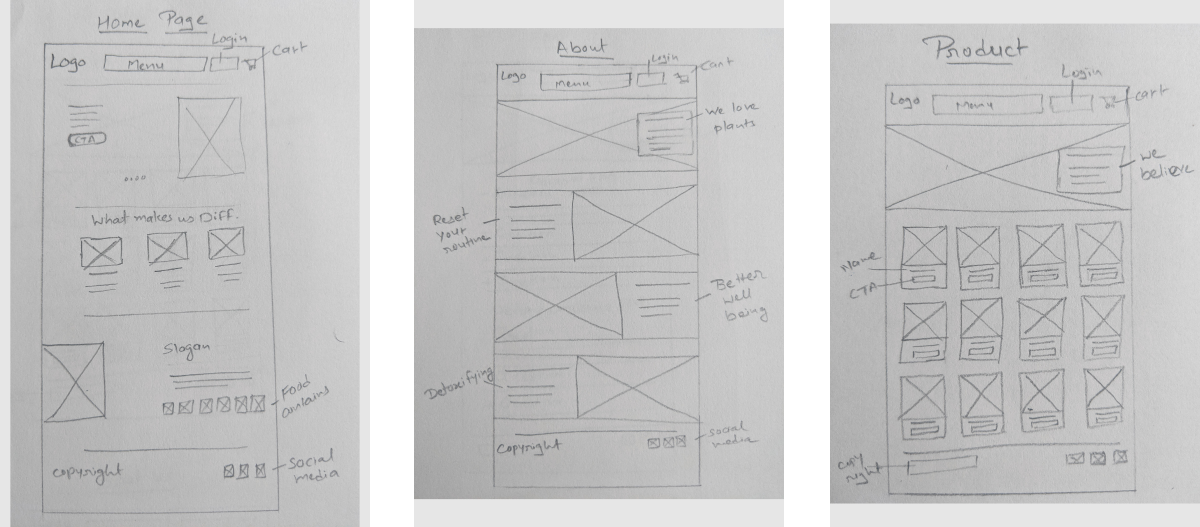 Home Page
Login
Cart
Logo
Menu
CTA
What makes us Diff.
Slogan
Food
contains
copyright
Social
media
About
Login
Cart
Logo
Menu
We love
plants
Reset
your
routine
Better
well
being
Detoxifying
Copyright
social
media
Product
Login
Cart
Logo
Menu
We
believe
Name
CTA
copy
right